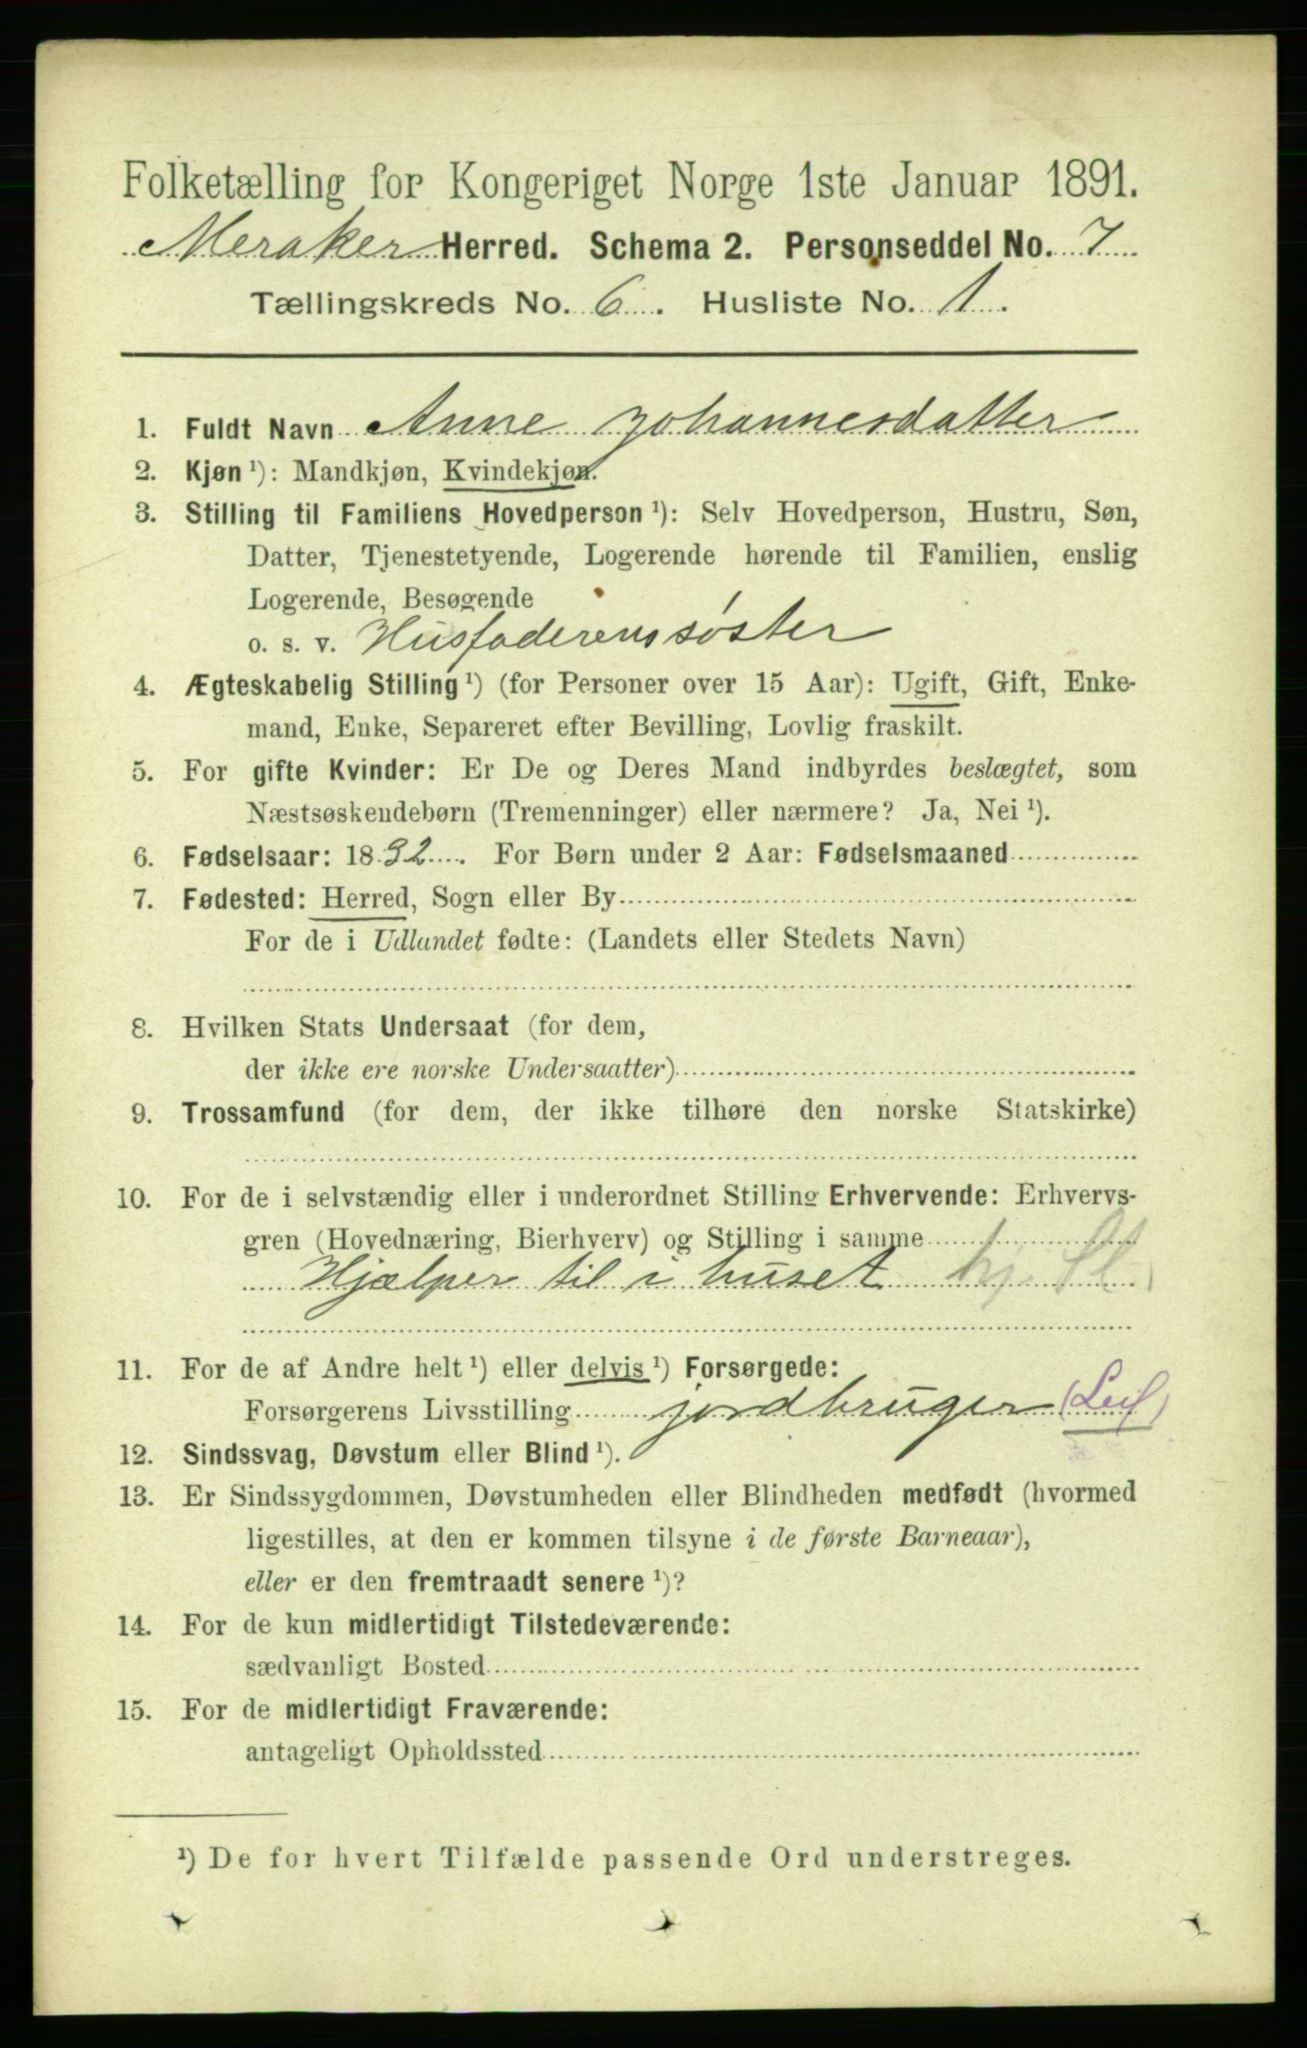 Folketælling for Kongeriget Norge 1ste Januar 1891.
Meraker Herred. Schema 2. Personseddel No. 7
Tællingskreds No. 6. Husliste No. 1.
1. Fuldt Navn Anne Johannesdatter
2. Kjøn ¹): Mandkjøn, Kvindekjøn.
3. Stilling til Familiens Hovedperson ¹): Selv Hovedperson, Hustru, Søn,
Datter, Tjenestetyende, Logerende hørende til Familien, enslig
Logerende, Besøgende
o. s. v. Husfaderens søster
4. Ægteskabelig Stilling ¹) (for Personer over 15 Aar): Ugift, Gift, Enke-
mand, Enke, Separeret efter Bevilling, Lovlig fraskilt.
5. For gifte Kvinder: Er De og Deres Mand indbyrdes beslægtet, som
Næstsøskendebørn (Tremenninger) eller nærmere? Ja, Nei ¹).
6. Fødselsaar: 1832. For Børn under 2 Aar: Fødselsmaaned
7. Fødested: Herred, Sogn eller By
For de i Udlandet fødte: (Landets eller Stedets Navn)
8. Hvilken Stats Undersaat (for dem,
der ikke ere norske Undersaatter)
9. Trossamfund (for dem, der ikke tilhøre den norske Statskirke)
10. For de i selvstændig eller i underordnet Stilling Erhvervende: Erhvervs-
gren (Hovednæring, Bierhverv) og Stilling i samme
Hjælper til i huset
11. For de af Andre helt ¹) eller delvis ¹) Forsørgede:
Forsørgerens Livsstilling jordbruger
12. Sindssvag, Døvstum eller Blind ¹).
13. Er Sindssygdommen, Døvstumheden eller Blindheden medfødt (hvormed
ligestilles, at den er kommen tilsyne i de første Barneaar),
eller er den fremtraadt senere ¹)?
14. For de kun midlertidigt Tilstedeværende:
sædvanligt Bosted
15. For de midlertidigt Fraværende:
antageligt Opholdssted
¹) De for hvert Tilfælde passende Ord understreges.